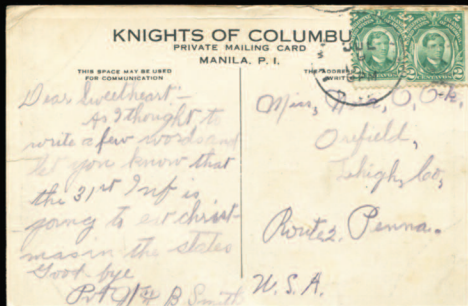 KNIGHTS OF COLUMBU
PRIVATE MAILING CARD
MANILA, P. I.
THIS SPACE MAY BE USED
FOR COMMUNICATION
THE ADDRES
WRIT
Dear Sweetheart-
As I thought to
write a few words and
let you know that
the 31st Inf is
going to eat christ-
mas in the states
Good-bye
Pvt B Smith
Miss,
Orefield,
Lehigh, Co,
Route 2. Penna.
U.S.A.
JUL
2 2